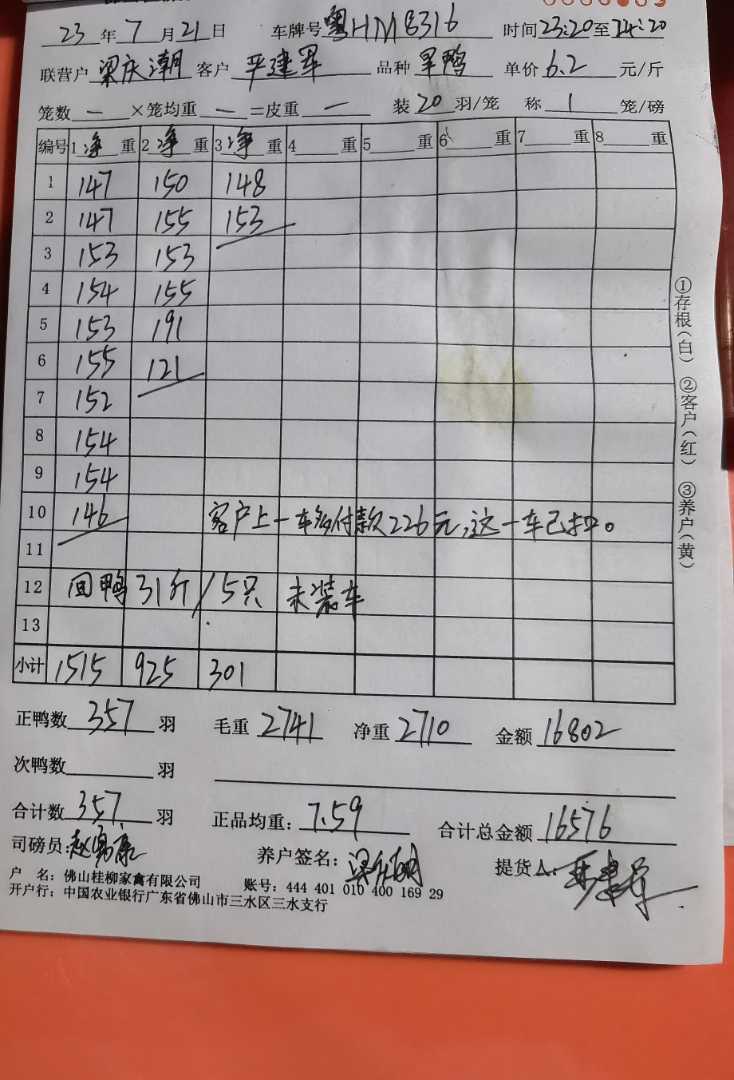 23年7月21日 车牌号粤HM8316 时间23:20至24:20
联营户梁庆潮 客户严建军 品种旱鸭 单价6.2元/斤
笼数—×笼均重—=皮重— 装20羽/笼 称1笼/磅
编号 1净重 2净重 3净重 4重 5重 6重 7重 8重
1 147 150 148
2 147 155 153
3 153 153
4 154 155
5 153 191
6 155 121
7 152
8 154
9 154
10 146 客户上一车多付款226元,这一车已扣。
11
12 回鸭31斤/5只 未装车
13
小计 1515 925 301
正鸭数357羽 毛重2741 净重2710 金额16802
次鸭数 羽
合计数357羽 正品均重:7.59 合计总金额16576
司磅员:赵 康 养户签名:梁庆潮 提货人:严建军
户 名:佛山桂柳家禽有限公司 账号:444 401 010 400 169 29
开户行:中国农业银行广东省佛山市三水区三水支行
①存根(白) ②客户(红) ③养户(黄)